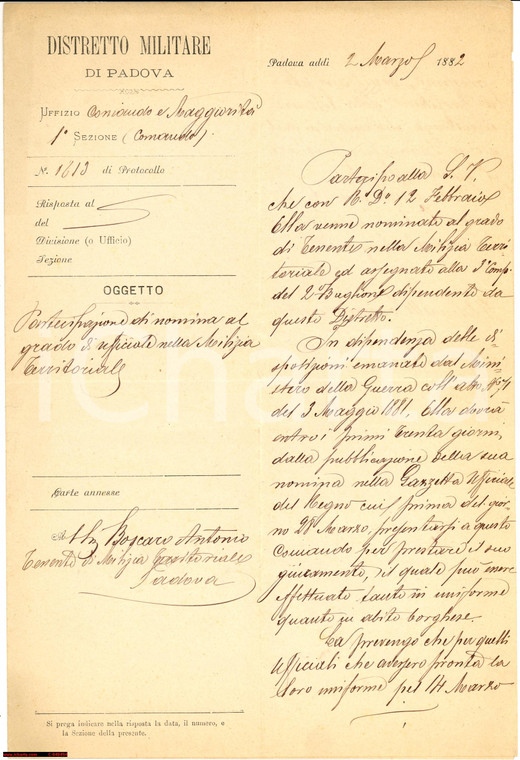 DISTRETTO MILITARE
DI PADOVA
UFFIZIO Comando e Maggiorità
1ª SEZIONE (Comando).
N. 1613 di Protocollo
Risposta al
del
Divisione (o Ufficio)
Sezione
OGGETTO
Partecipazione di nomina al
grado di ufficiale nella Milizia
Territoriale
Carte annesse
Al Sig Boscaro Antonio
Tenente di Milizia Territoriale
Padova
Si prega indicare nella risposta la data, il numero, e
la Sezione della presente.
Padova addì 2 Marzo 1882
Partecipo alla S. V.
che con R. Dº 12 Febbraio
Ella venne nominato al grado
di Tenente nella Milizia Terri
toriale ed assegnato alla 3ª Comp.
del 2º Buglione dipendente da
questo Distretto.
In dipendenza delle di
spotizioni emanate dal Mini
stero della Guerra coll'atto Nº 71
del 3 Maggio 1881, Ella dovrà
entro i primi trenta giorni,
dalla pubblicazione della sua
nomina nella Gazzetta Ufficiale
del Regno cui prima del gior
no 28 Marzo, presentarsi a questo
Comando per prestare il suo
giuramento, il quale può essere
effettuato tanto in uniforme
quanto in abito borghese.
La prevengo che per quelli
Ufficiali che avessero pronta la
loro uniforme pel 14 Marzo